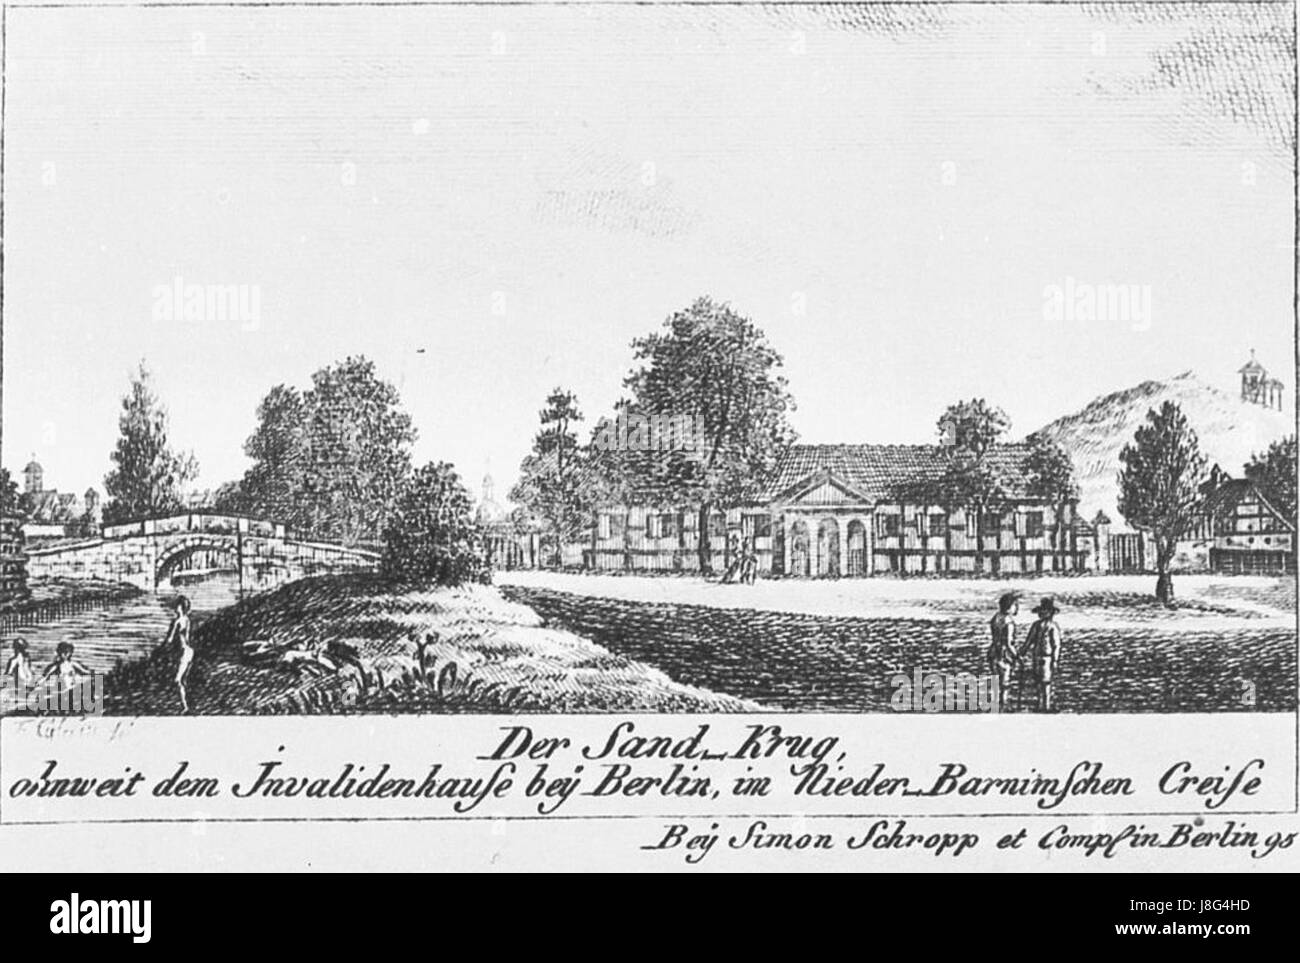 Der Sand-Krug,
ohnweit dem Invalidenhauſe beÿ Berlin, im Nieder-Barnimſchen Creiſe
Beÿ Simon Schropp et Comp. in Berlin 95
alamy
alamy
Image ID: J8G4HD
www.alamy.com